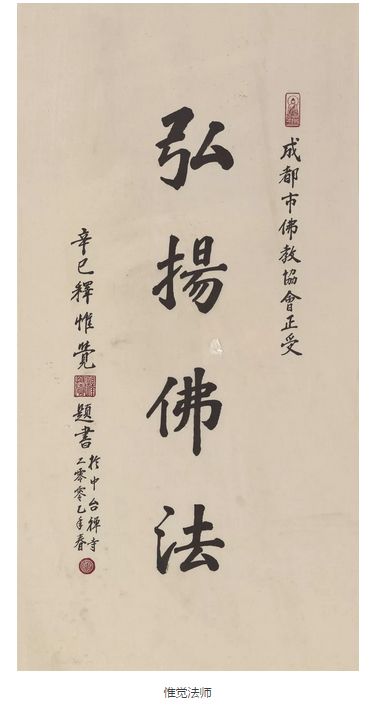 成都市佛教協會正受
弘揚佛法
辛巳釋惟覺
題書
於中台禪寺
二零零乙年春
惟觉法师